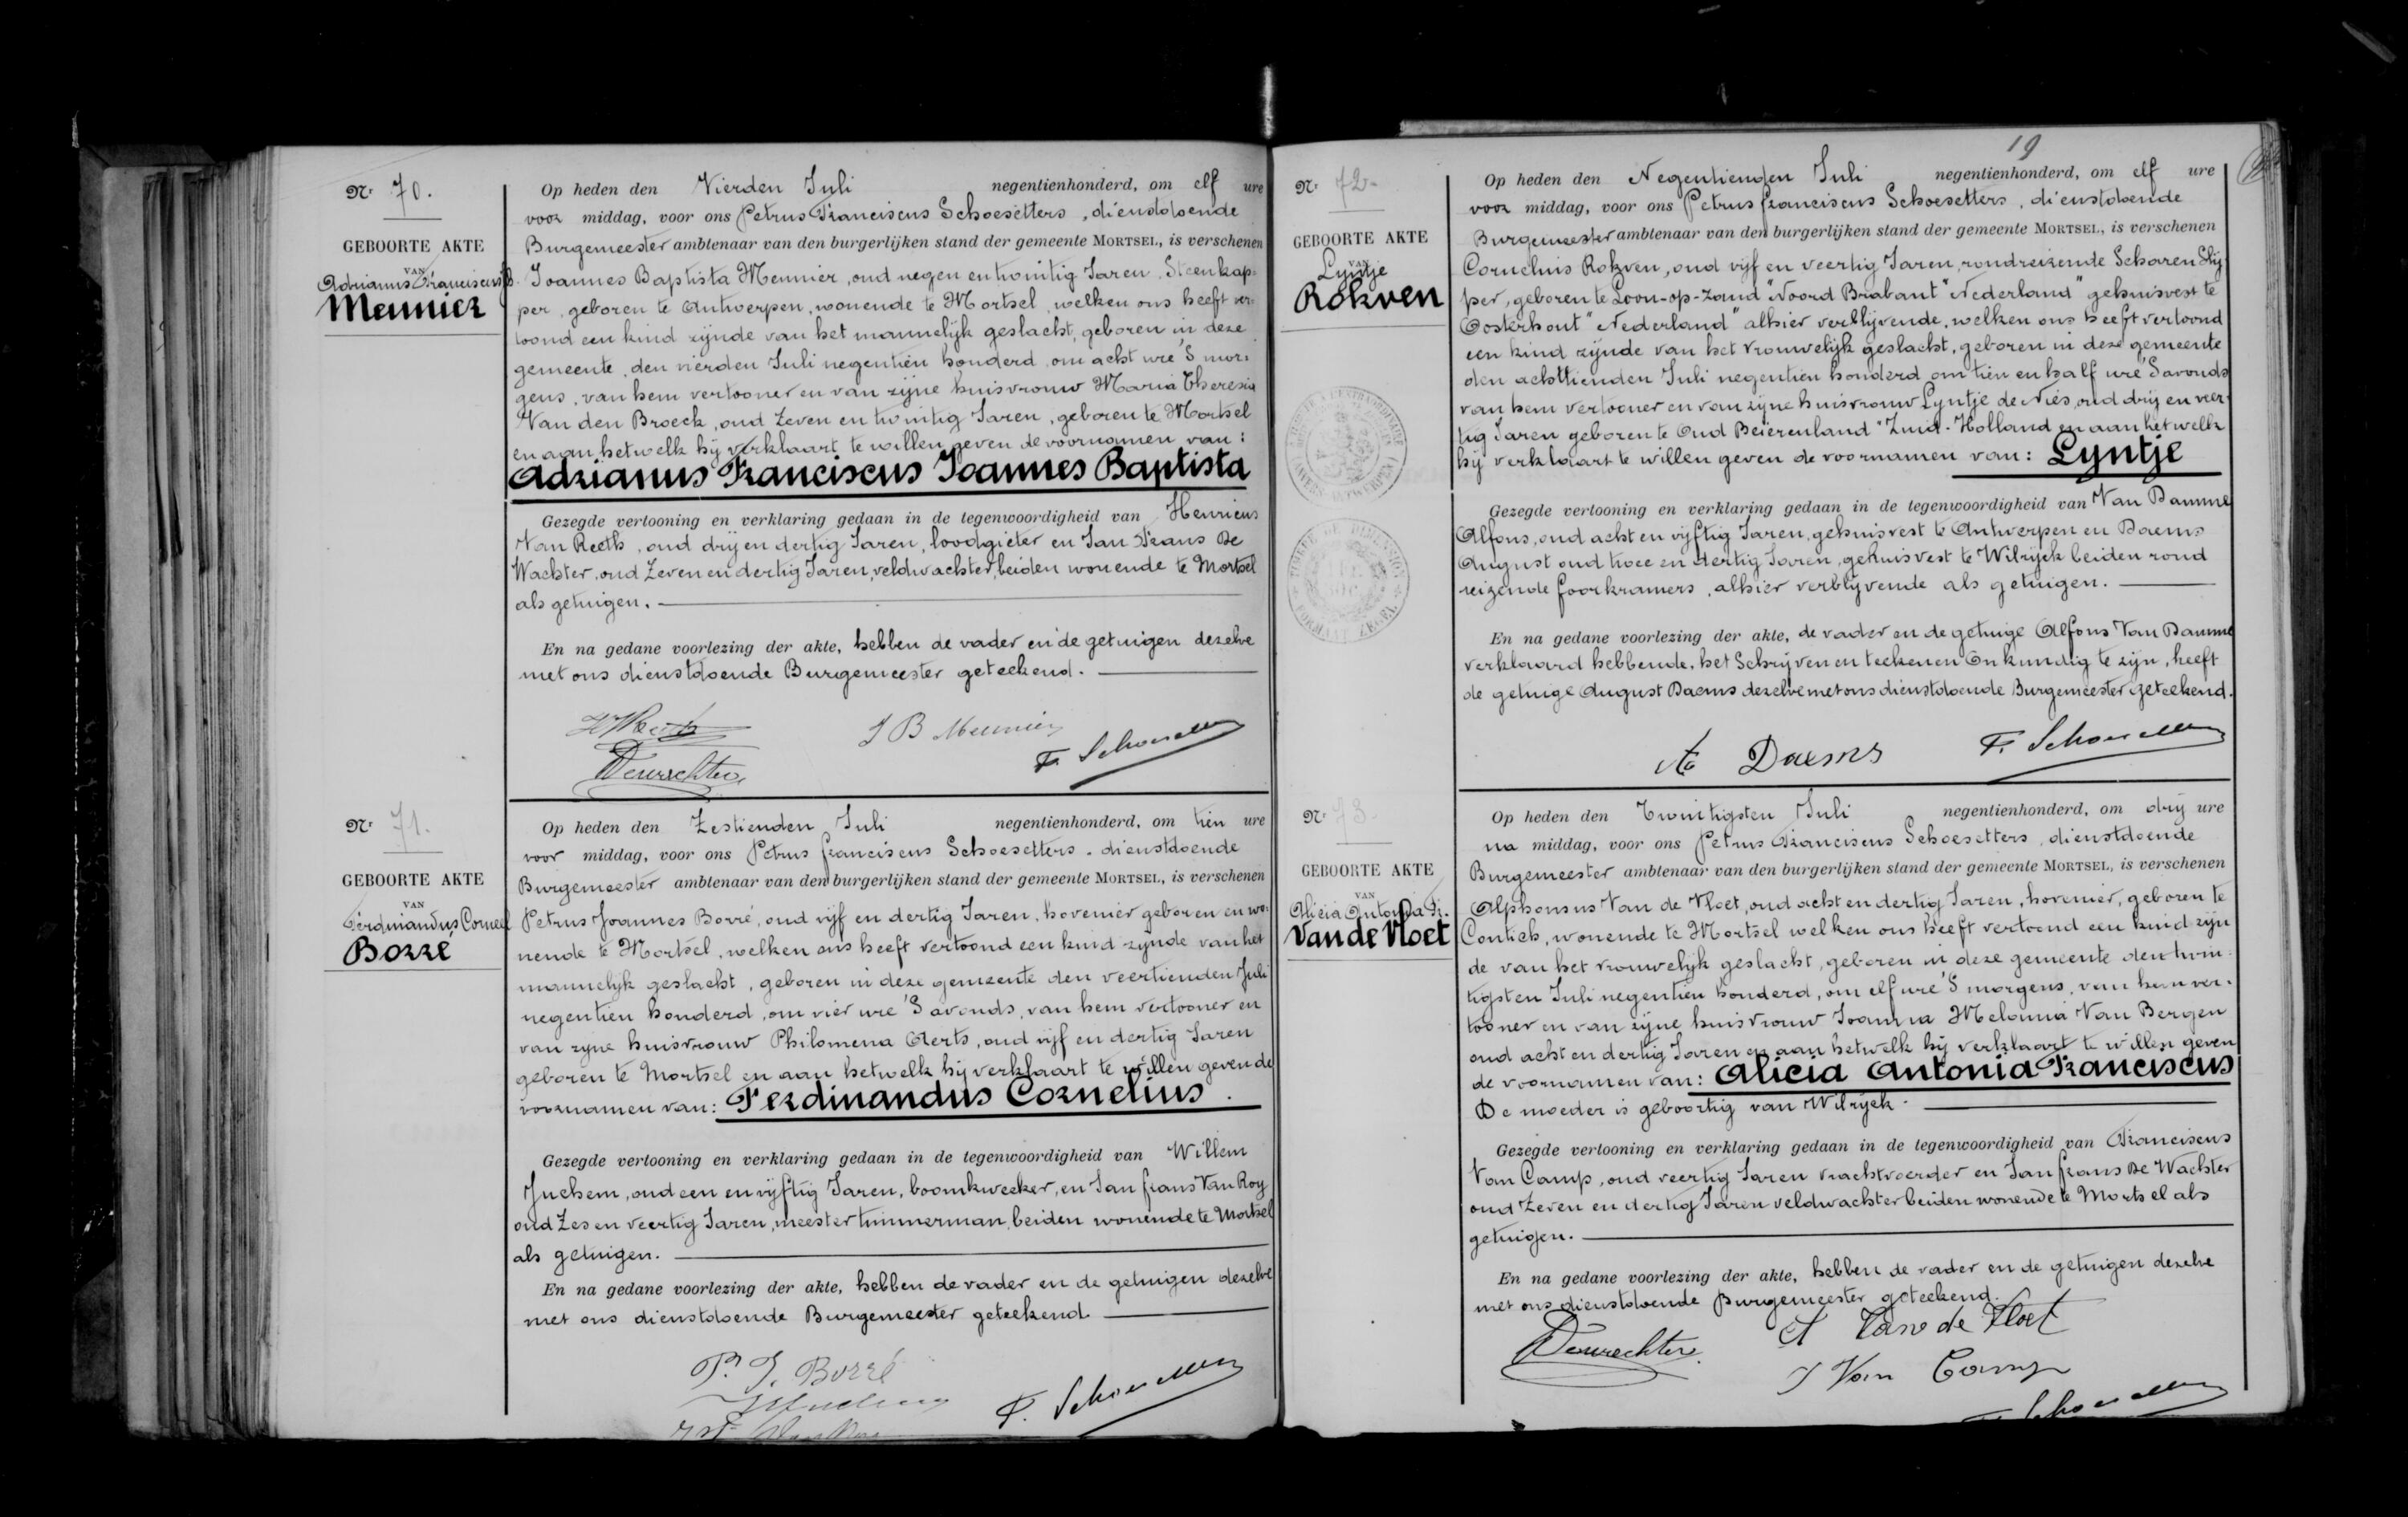 Nr 70.
GEBOORTE AKTE
VAN
Adrianus Franciscus J.B.
Meunier
Op heden den Vierden Juli negentienhonderd, om elf ure
voor middag, voor ons Petrus Franciscus Schoesetters, dienstdoende
Burgemeester ambtenaar van den burgerlijken stand der gemeente MORTSEL, is verschenen
Joannes Baptista Meunier, oud negen en twintig Jaren, Steenkap-
per, geboren te Antwerpen, wonende te Mortsel, welken ons heeft ver-
toond een kind zijnde van het mannelijk geslacht, geboren in deze
gemeente, den vierden Juli negentien honderd, om acht ure 'S mor-
gens, van hem vertooner en van zijne huisvrouw Maria Theresia
Van den Broeck, oud Zeven en twintig Jaren, geboren te Mortsel
en aan hetwelk hij verklaart te willen geven de voornamen van:
Adrianus Franciscus Joannes Baptista
Gezegde vertooning en verklaring gedaan in de tegenwoordigheid van Henricus
Van Reeth, oud drij en dertig Jaren, loodgieter en Jan Frans De
Wachter, oud Zeven en dertig Jaren, veldwachter, beiden wonende te Mortsel
als getuigen.
En na gedane voorlezing der akte, hebben de vader en de getuigen dezelve
met ons dienstdoende Burgemeester geteekend.
J B Meunier
F. Schoesetters
Dewachter
Nr 71.
GEBOORTE AKTE
VAN
Ferdinandus Corneel
Borré
Op heden den Zestienden Juli negentienhonderd, om tien ure
voor middag, voor ons Petrus Franciscus Schoesetters, dienstdoende
Burgemeester ambtenaar van den burgerlijken stand der gemeente MORTSEL, is verschenen
Petrus Joannes Borré, oud vijf en dertig Jaren, hovenier geboren en wo-
nende te Mortsel, welken ons heeft vertoond een kind zijnde van het
mannelijk geslacht, geboren in deze gemeente den veertienden Juli
negentien honderd, om vier ure 'S avonds, van hem vertooner en
van zijne huisvrouw Philomena Aerts, oud vijf en dertig Jaren
geboren te Mortsel en aan hetwelk hij verklaart te willen geven de
voornamen van: Ferdinandus Cornelius.
Gezegde vertooning en verklaring gedaan in de tegenwoordigheid van Willem
Juchem, oud een en vijftig Jaren, boomkweeker, en Jan Frans Van Roy
oud Zes en veertig Jaren, meester timmerman, beiden wonende te Mortsel
als getuigen.
En na gedane voorlezing der akte, hebben de vader en de getuigen dezelve
met ons dienstdoende Burgemeester geteekend
P. J. Borré
F. Schoesetters
19
Nr 72.
GEBOORTE AKTE
VAN
Lyntje
Rokven
Op heden den Negentienden Juli negentienhonderd, om elf ure
voor middag, voor ons Petrus Franciscus Schoesetters, dienstdoende
Burgemeester ambtenaar van den burgerlijken stand der gemeente MORTSEL, is verschenen
Cornelius Rokven, oud vijf en veertig Jaren, rondreizende Scharen Slij
per, geboren te Loon-op-Zand "Noord Brabant" Nederland" gehuisvest te
Oosterhout "Nederland" alhier verblijvende, welken ons heeft vertoond
een kind zijnde van het vrouwelijk geslacht, geboren in deze gemeente
den achttienden Juli negentien honderd om tien en half ure 'S avonds
van hem vertooner en van zijne huisvrouw Lyntje de Nies, oud drij en veer-
tig Jaren geboren te Oud Beierenland "Zuid-Holland en aan hetwelk
hij verklaart te willen geven de voornamen van: Lyntje
Gezegde vertooning en verklaring gedaan in de tegenwoordigheid van Van Damme
Alfons, oud acht en vijftig Jaren, gehuisvest te Antwerpen en Daems
August oud twee en dertig Jaren, gehuisvest te Wilrijck beiden rond
reizende foorkramers, alhier verblijvende als getuigen.
En na gedane voorlezing der akte, de vader en de getuige Alfons Van Damme
verklaard hebbende, het Schrijven en teekenen Onkundig te zijn, heeft
de getuige August Daems dezelve met ons dienstdoende Burgemeester geteekend.
A Daems
F. Schoesetters
Nr 73.
GEBOORTE AKTE
VAN
Alicia Antonia Fr.
Van de Vloet
Op heden den Twintigsten Juli negentienhonderd, om drij ure
na middag, voor ons Petrus Franciscus Schoesetters, dienstdoende
Burgemeester ambtenaar van den burgerlijken stand der gemeente MORTSEL, is verschenen
Alphonsus Van de Vloet, oud acht en dertig Jaren, hovenier, geboren te
Contich, wonende te Mortsel welken ons heeft vertoond een kind zijn
de van het vrouwelijk geslacht, geboren in deze gemeente den twin-
tigsten Juli negentien honderd, om elf ure 'S morgens, van hem ver-
tooner en van zijne huisvrouw Joanna Melania Van Bergen
oud acht en dertig Jaren en aan hetwelk hij verklaart te willen geven
de voornamen van: Alicia Antonia Franciscus
De moeder is geboortig van Wilrijck.
Gezegde vertooning en verklaring gedaan in de tegenwoordigheid van Franciscus
Van Camp, oud veertig Jaren vrachtvoerder en Jan Frans De Wachter
oud Zeven en dertig Jaren veldwachter beiden wonende te Mortsel als
getuigen.
En na gedane voorlezing der akte, hebben de vader en de getuigen dezelve
met ons dienstdoende Burgemeester geteekend.
Dewachter
A Van de Vloet
J Van Camp